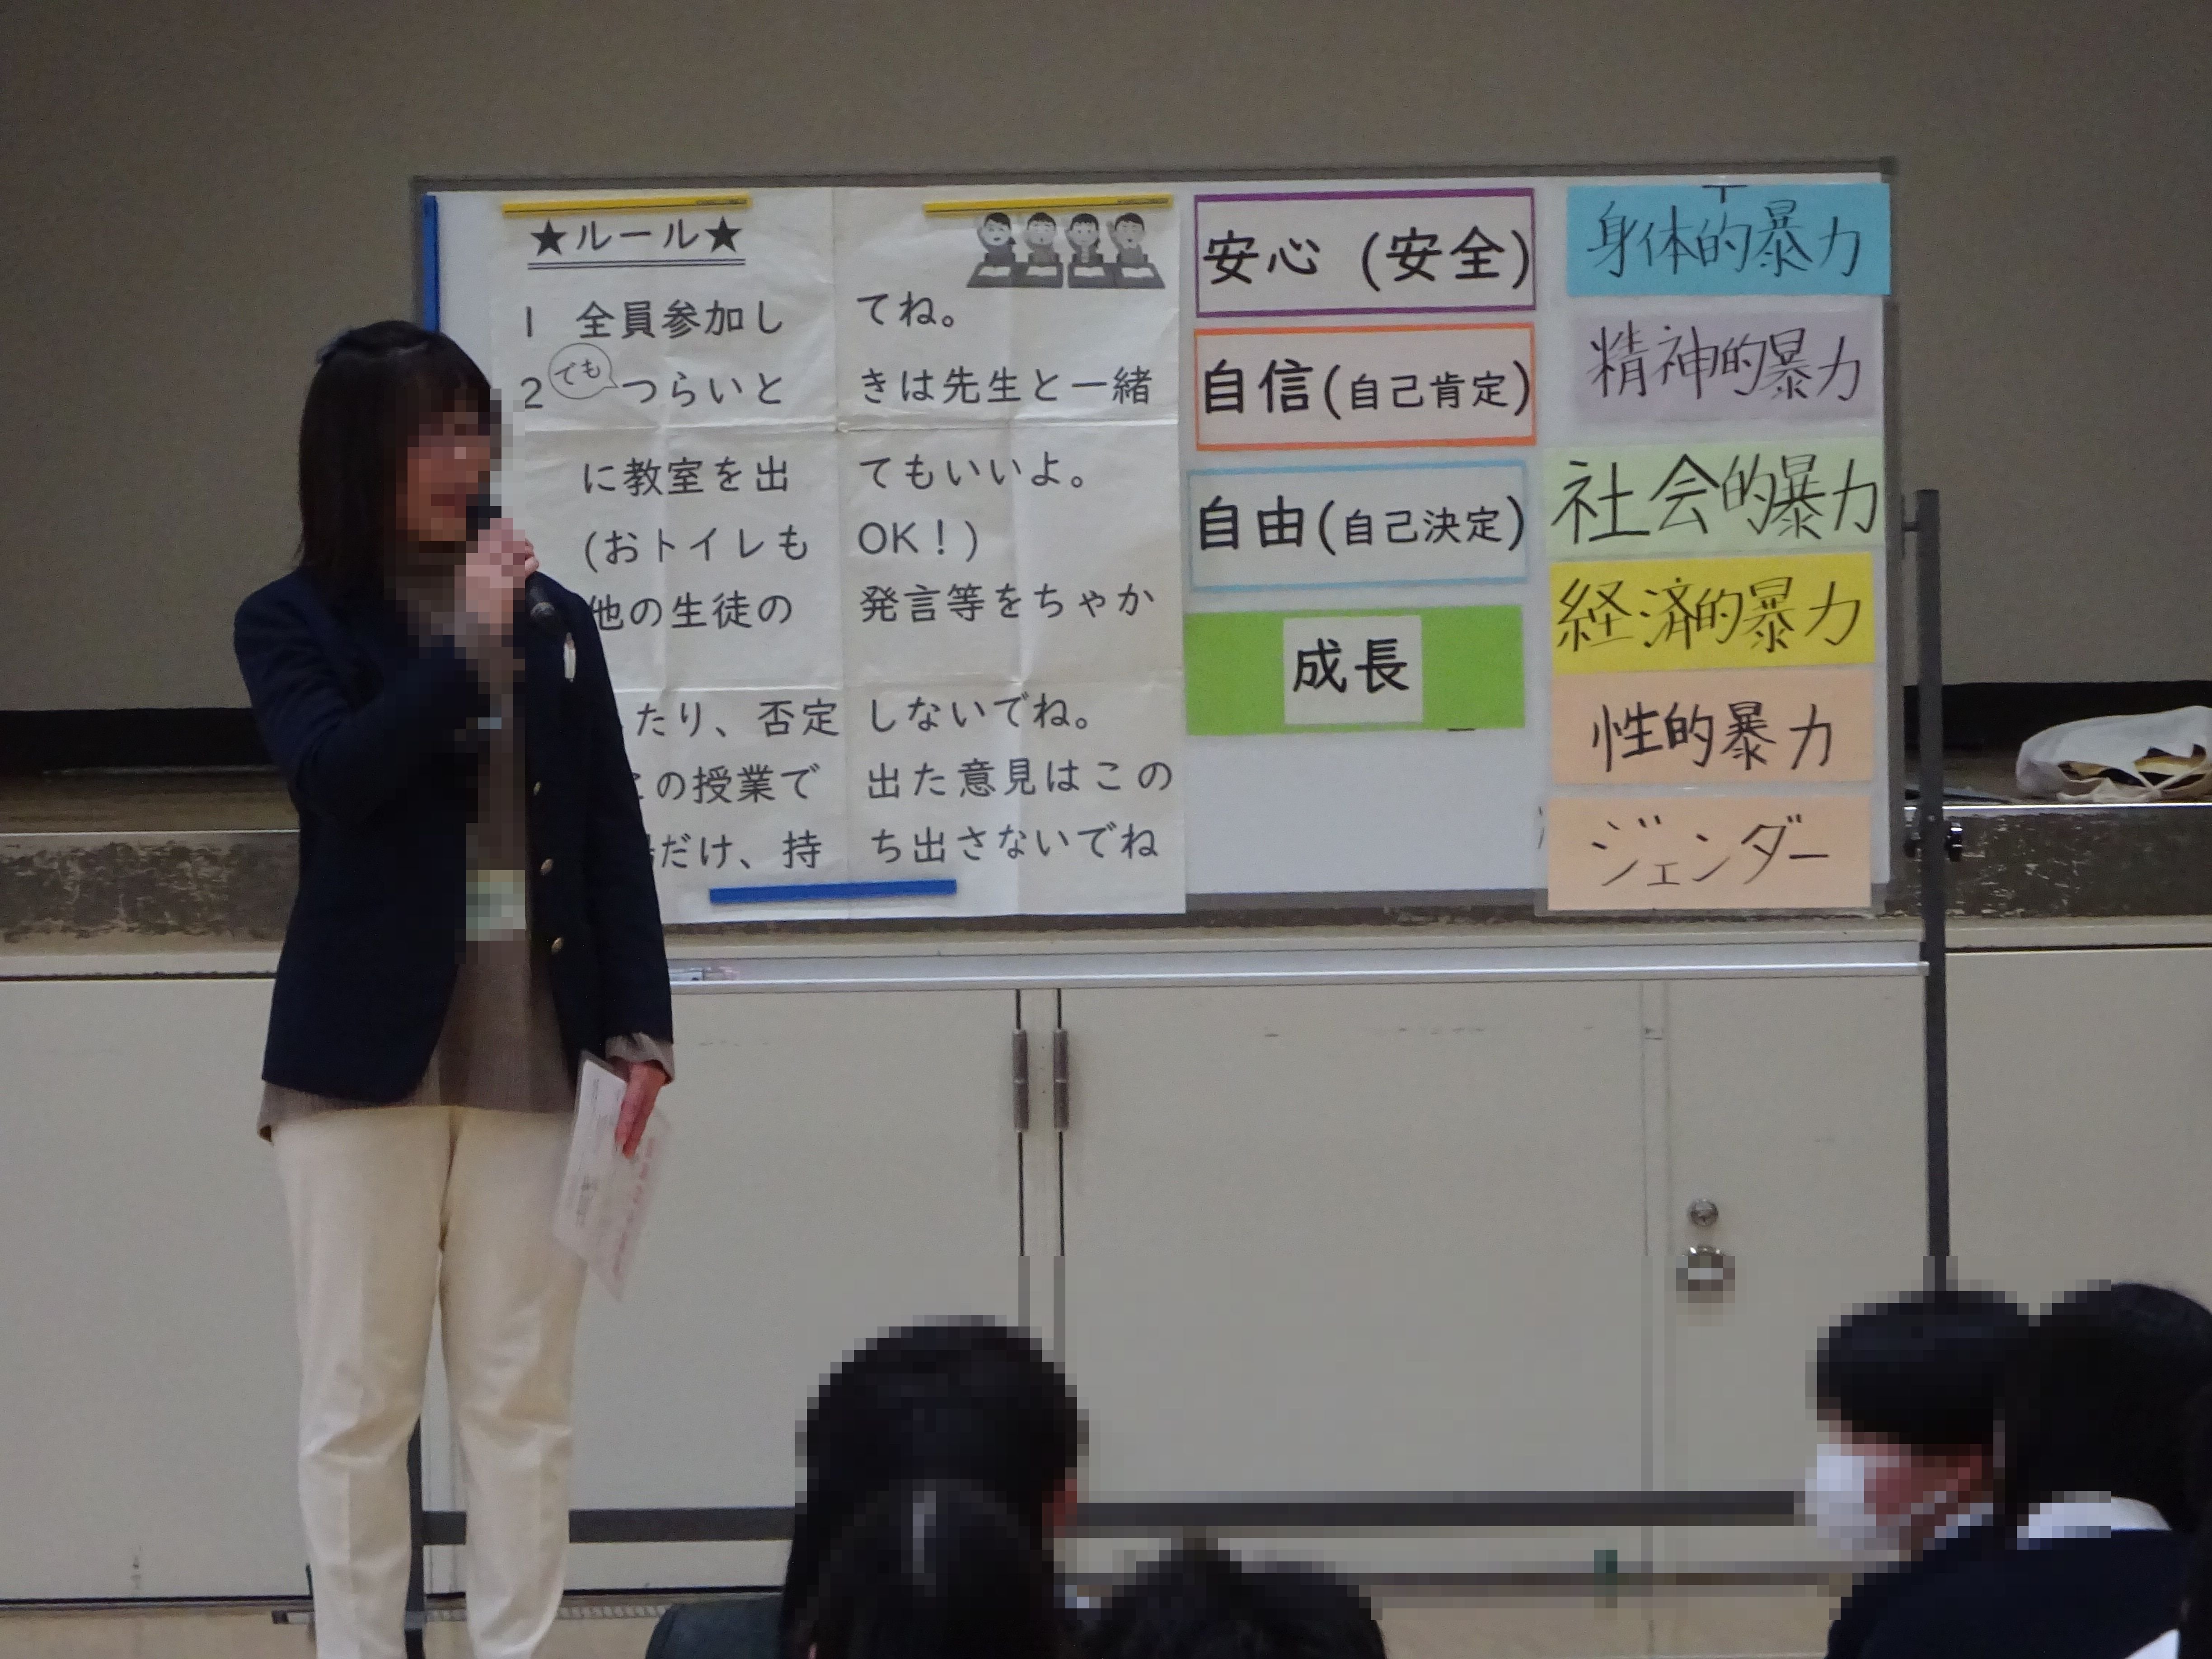 ★ルール★
1 全員参加してね。
2 でも つらいときは先生と一緒
に教室を出てもいいよ。
(おトイレもOK！)
他の生徒の発言等をちゃか
したり、否定しないでね。
この授業で出た意見はこの
だけ、持ち出さないでね
安心 (安全)
自信(自己肯定)
自由(自己決定)
成長
身体的暴力
精神的暴力
社会的暴力
経済的暴力
性的暴力
ジェンダー